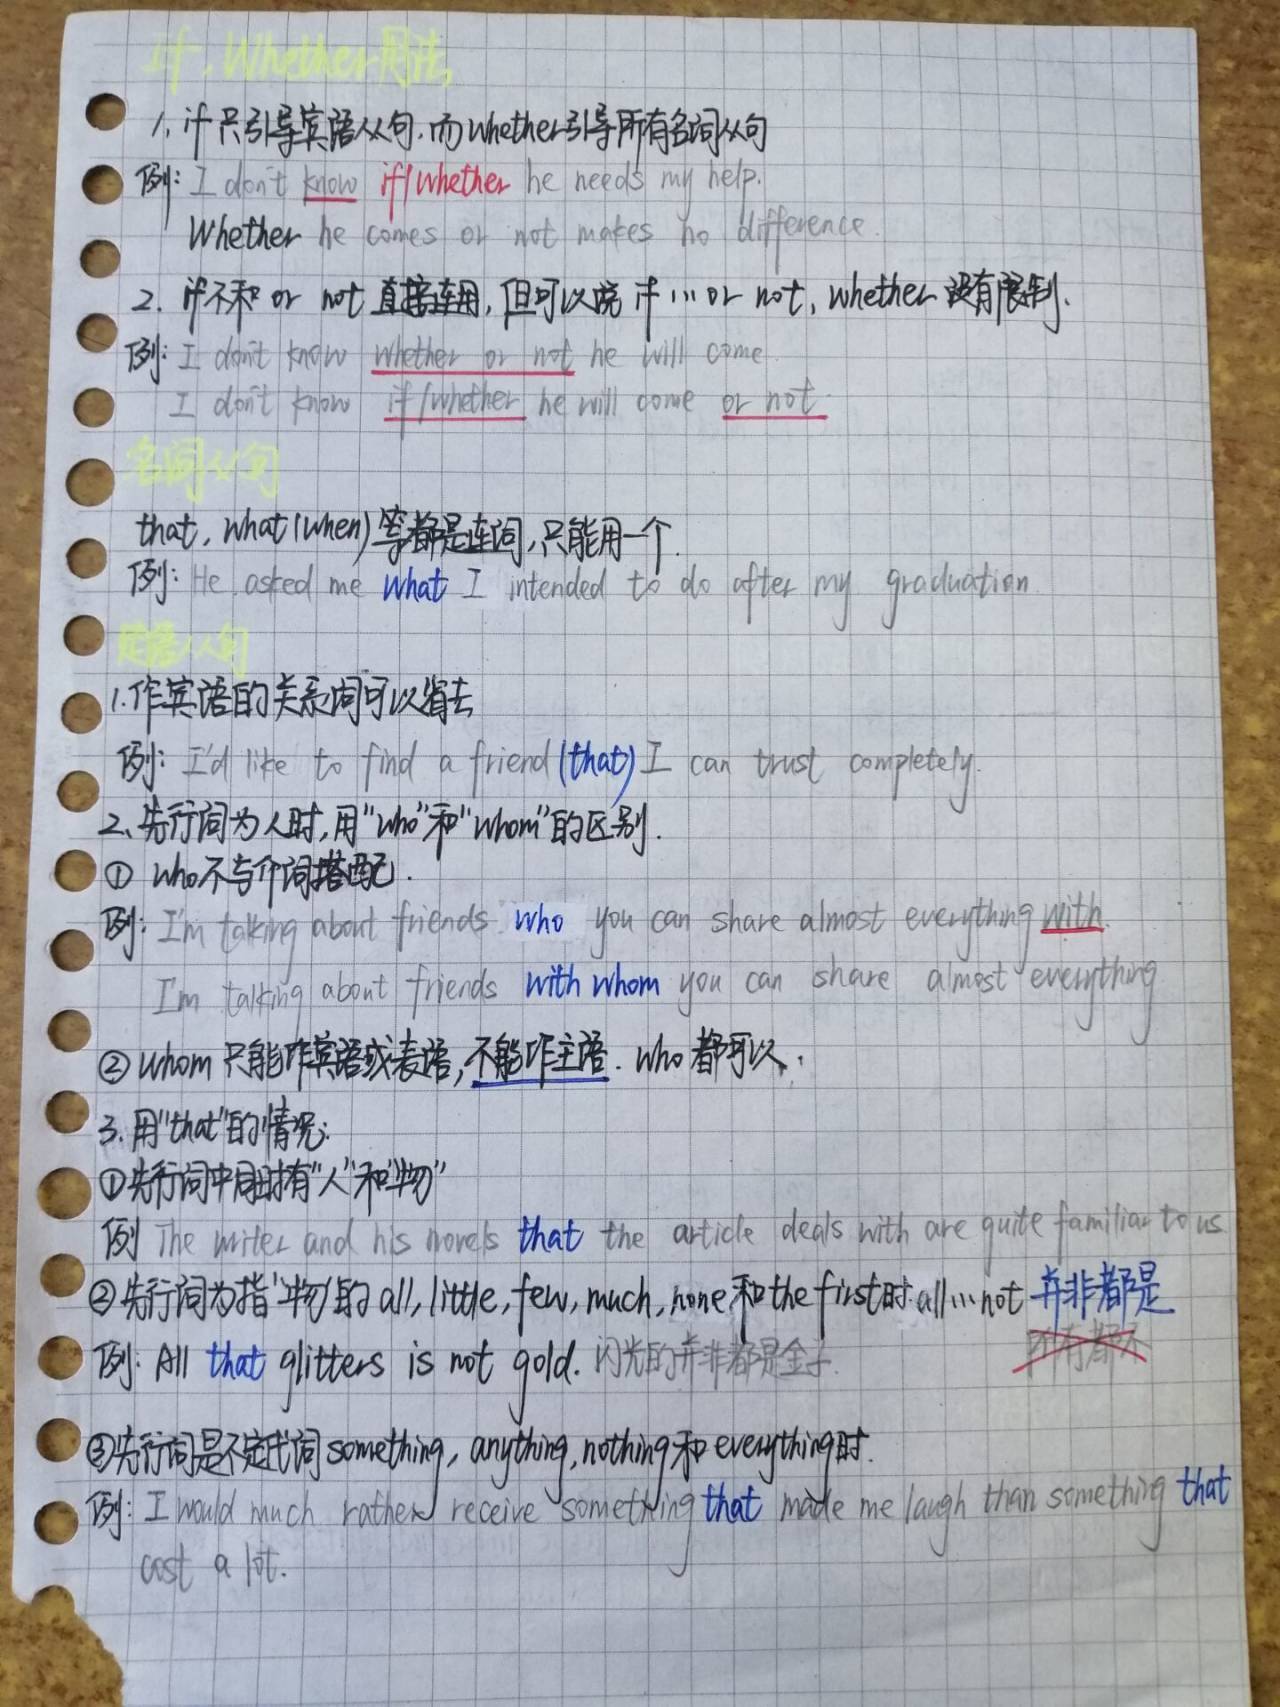 if, Whether用法
1, if 只引导宾语从句,而whether引导所有名词从句
例: I don't know if/whether he needs my help.
Whether he comes or not makes no difference.
2. if不和 or not 直接连用,但可以说 if … or not, whether 没有限制.
例: I don't know whether or not he will come
I don't know if/whether he will come or not.
名词从句
that, what(when)等都是连词,只能用一个.
例: He asked me what I intended to do after my graduation.
定语从句
1.作宾语的关系词可以省去
例: I'd like to find a friend (that) I can trust completely.
2、先行词为人时,用"who"和"whom"的区别.
① who不与介词搭配.
例: I'm talking about friends who you can share almost everything with.
I'm talking about friends with whom you can share almost everything
② whom 只能作宾语或表语,不能作主语. who 都可以.
3. 用"that"的情况:
①先行词中同时有"人"和"物"
例 The writer and his novels that the article deals with are quite familiar to us
②先行词为指"物"的 all, little, few, much, none 和 the first时. all…not 并非都是
例: All that glitters is not gold. 闪光的并非都是金子.
所有都不
③先行词是不定代词 something, anything, nothing 和 everything时.
例: I would much rather receive something that made me laugh than something that
cost a lot.